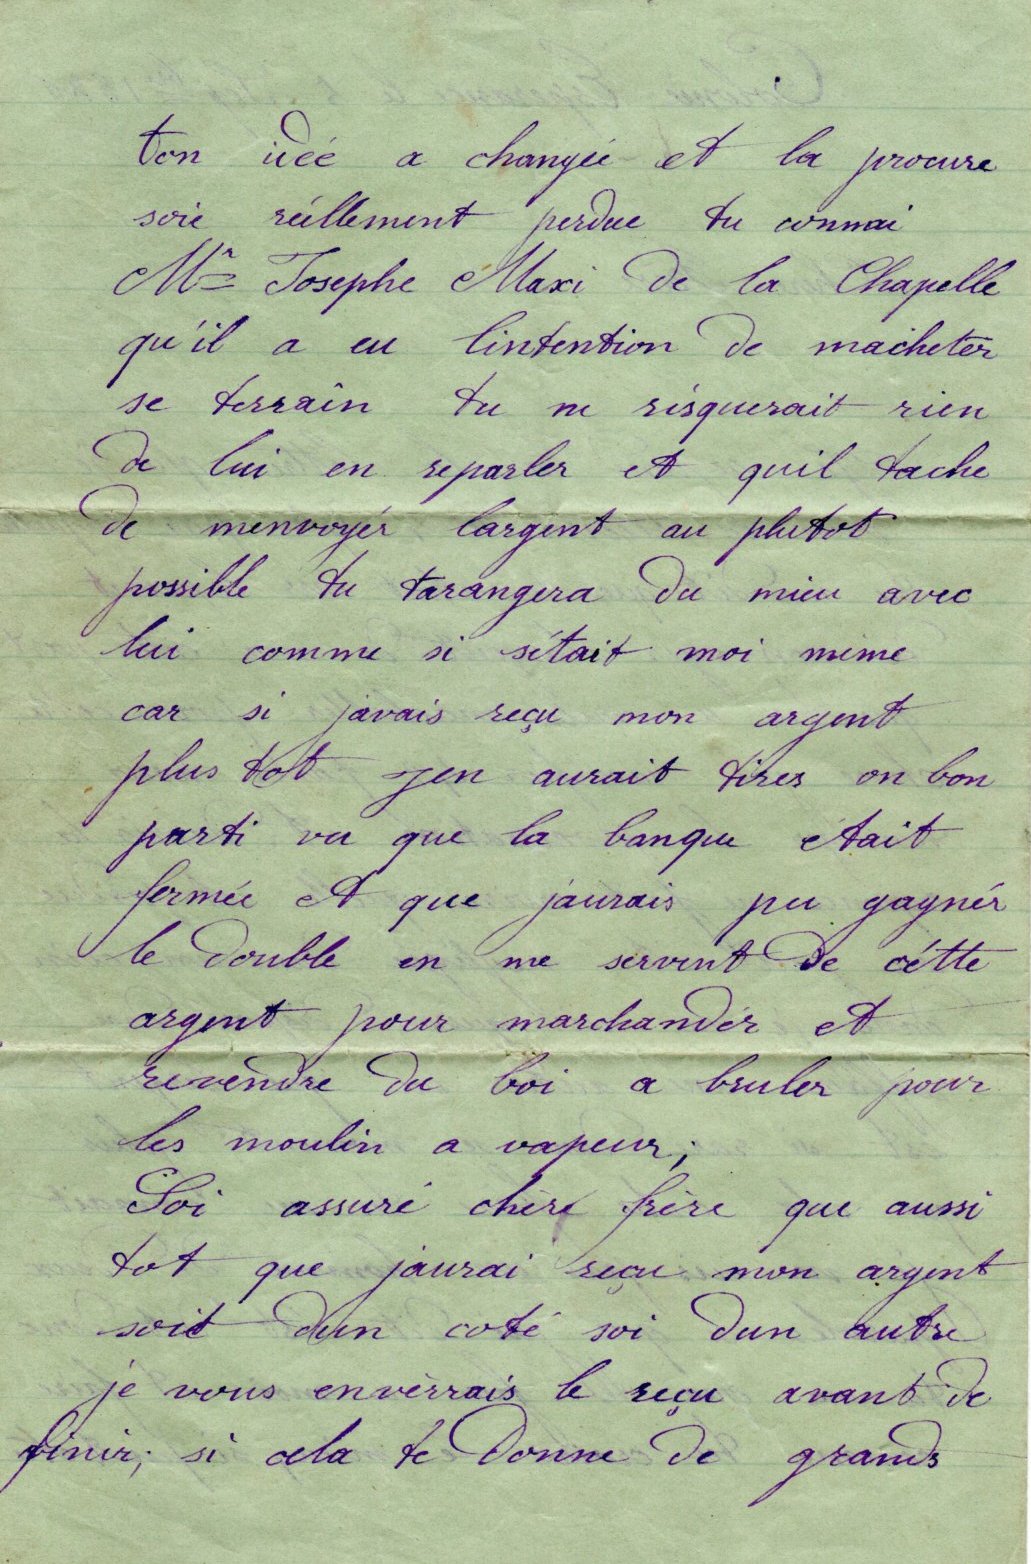 ton idée a changée et la procure
soie réellement perdue tu connai
Mr Josephe Maxi de la Chapelle
qu'il a eu lintention de macheter
se terrain tu ne risquerait rien
de lui en reparler et quil tache
de menvoyér largent au plutot
possible tu tarangera du mieu avec
lui comme si s'était moi même
car si javais reçu mon argent
plus tot jen aurait tirer on bon
parti vu que la banque était
fermée et que j'aurais pu gagnér
le double en me servent de cétte
argent pour marchandér et
revendre du boi a bruler pour
les moulin a vapeur;
Soi assuré chère frère que aussi
tot que jaurai reçu mon argent
soit dun coté soi dun autre
je vous enverrais le reçu avant de
finir; si cela te donne de grands